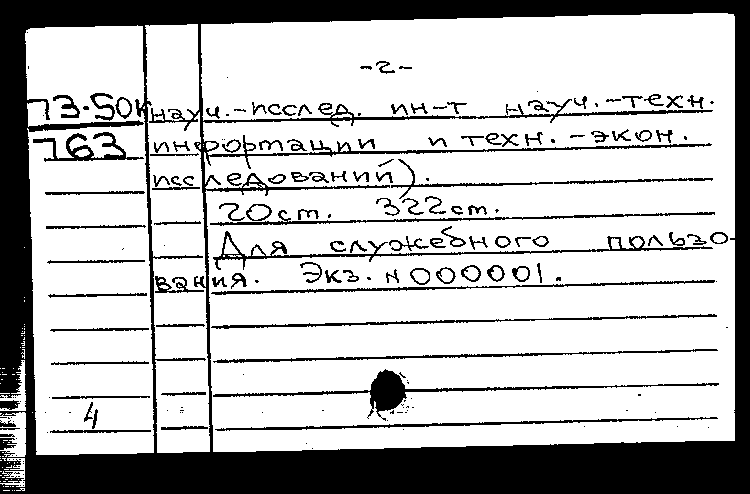 -2-
73-50К науч.-исслед. ин-т науч.-техн.
763 информации и техн.-экон.
исследований).
20ст. 322ст.
Для служебного пользо-
вания. Экз. N 000001.
4